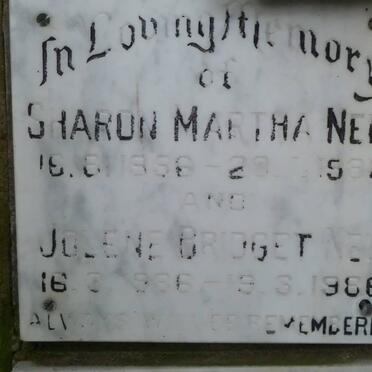 In Loving Memory
of
SHARON MARTHA NEL
AND
JOLENE BRIDGET NEL
16.3.1986-19.3.1986
ALWAYS REMEMBERED